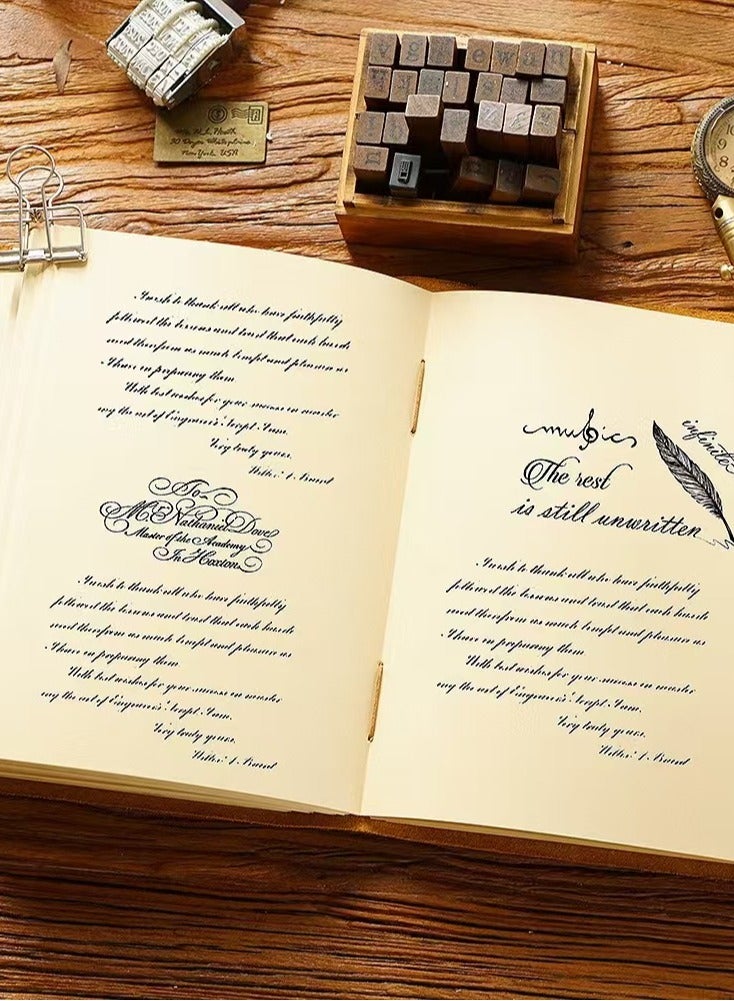 New York, USA
I wish to thank all who have faithfully
followed the lessons and trust that each
therefrom as much benefit and pleasure as
I have in preparing them
With best wishes for your success in master
ing the art of Engrosser's Script, I am,
Very truly yours,
To
Mr. Nathaniel Dove
Master of the Academy
In Hoxton
I wish to thank all who have faithfully
followed the lessons and trust that each
therefrom as much benefit and pleasure as
I have in preparing them
With best wishes for your success in master
ing the art of Engrosser's Script, I am,
Very truly yours,
music
infinite
The rest
is still unwritten
I wish to thank all who have faithfully
followed the lessons and trust that each
therefrom as much benefit and pleasure as
I have in preparing them
With best wishes for your success in master
ing the art of Engrosser's Script, I am,
Very truly yours,